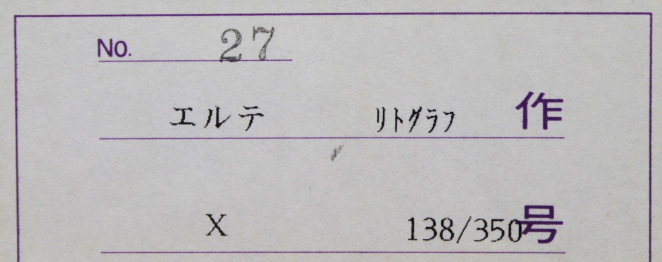 No. 27
エルテ リトグラフ 作
X 138/350号